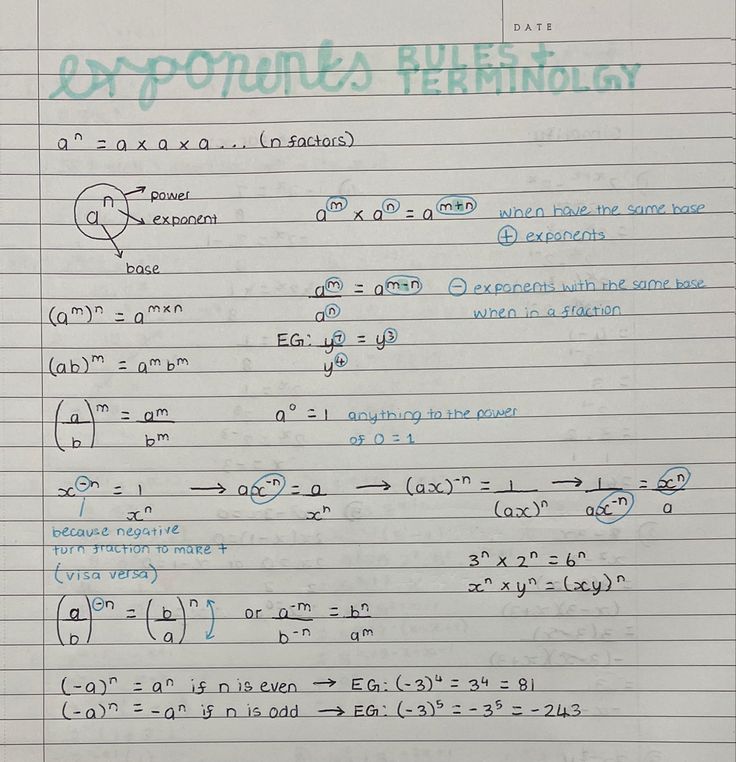 DATE
exponents RULES + TERMINOLGY
aⁿ = a × a × a ... (n factors)
aⁿ
power
exponent
base
aᵐ × aⁿ = aᵐ⁺ⁿ when have the same base
⊕ exponents
(aᵐ)ⁿ = aᵐˣⁿ
aᵐ/aⁿ = aᵐ⁻ⁿ ⊖ exponents with the same base
when in a fraction
EG: y⁷/y⁴ = y³
(ab)ᵐ = aᵐbᵐ
(a/b)ᵐ = aᵐ/bᵐ
a⁰ = 1 anything to the power
of 0 = 1
x⁻ⁿ = 1/xⁿ → ax⁻ⁿ = a/xⁿ → (ax)⁻ⁿ = 1/(ax)ⁿ → 1/ax⁻ⁿ = xⁿ/a
because negative
turn fraction to make +
(visa versa)
3ⁿ × 2ⁿ = 6ⁿ
xⁿ × yⁿ = (xy)ⁿ
(a/b)⁻ⁿ = (b/a)ⁿ or a⁻ᵐ/b⁻ⁿ = bⁿ/aᵐ
(-a)ⁿ = aⁿ if n is even → EG: (-3)⁴ = 3⁴ = 81
(-a)ⁿ = -aⁿ if n is odd → EG: (-3)⁵ = -3⁵ = -243